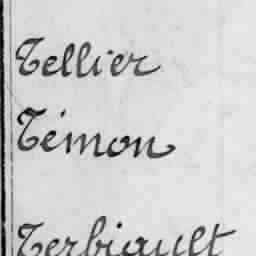 Tellier
Témon
Terbiault